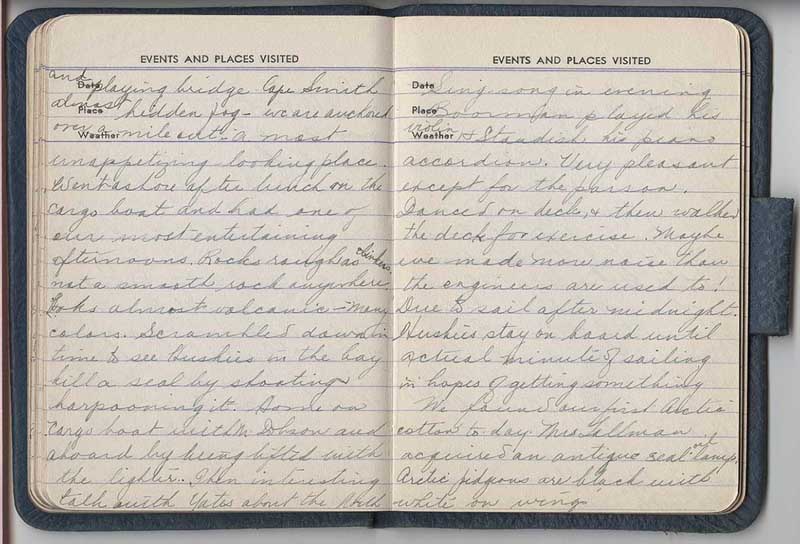 EVENTS AND PLACES VISITED
Date and playing bridge. Cape Smith
Place almost hidden fog - we are anchored
Weather over a mile out - a most
unappetizing looking place.
Went ashore after lunch on the
cargo boat and had one of
our most entertaining
afternoons. Rocks rough as clinkers.
not a smooth rock anywhere
looks almost volcanic - many
colors. Scrambled down in
time to see Huskies in the bay
kill a seal by shooting &
harpooning it. Home on
cargo boat with Mr Dobson and
aboard by being lifted with
the lighter. Then interesting
talk with Yates about the North
EVENTS AND PLACES VISITED
Date Sing song in evening
Place Boorman played his
Weather violin & Standish his piano
accordion. Very pleasant
except for the parson.
Danced on deck, & then walked
the deck for exercise. Maybe
we made more noise than
the engineers are used to!
Due to sail after midnight.
Huskies stay on board until
actual minute of sailing
in hopes of getting something
We found our first Arctic
cotton to day. Mrs
acquired an antique seal oil lamp.
Arctic pidgeons are black with
white on wings